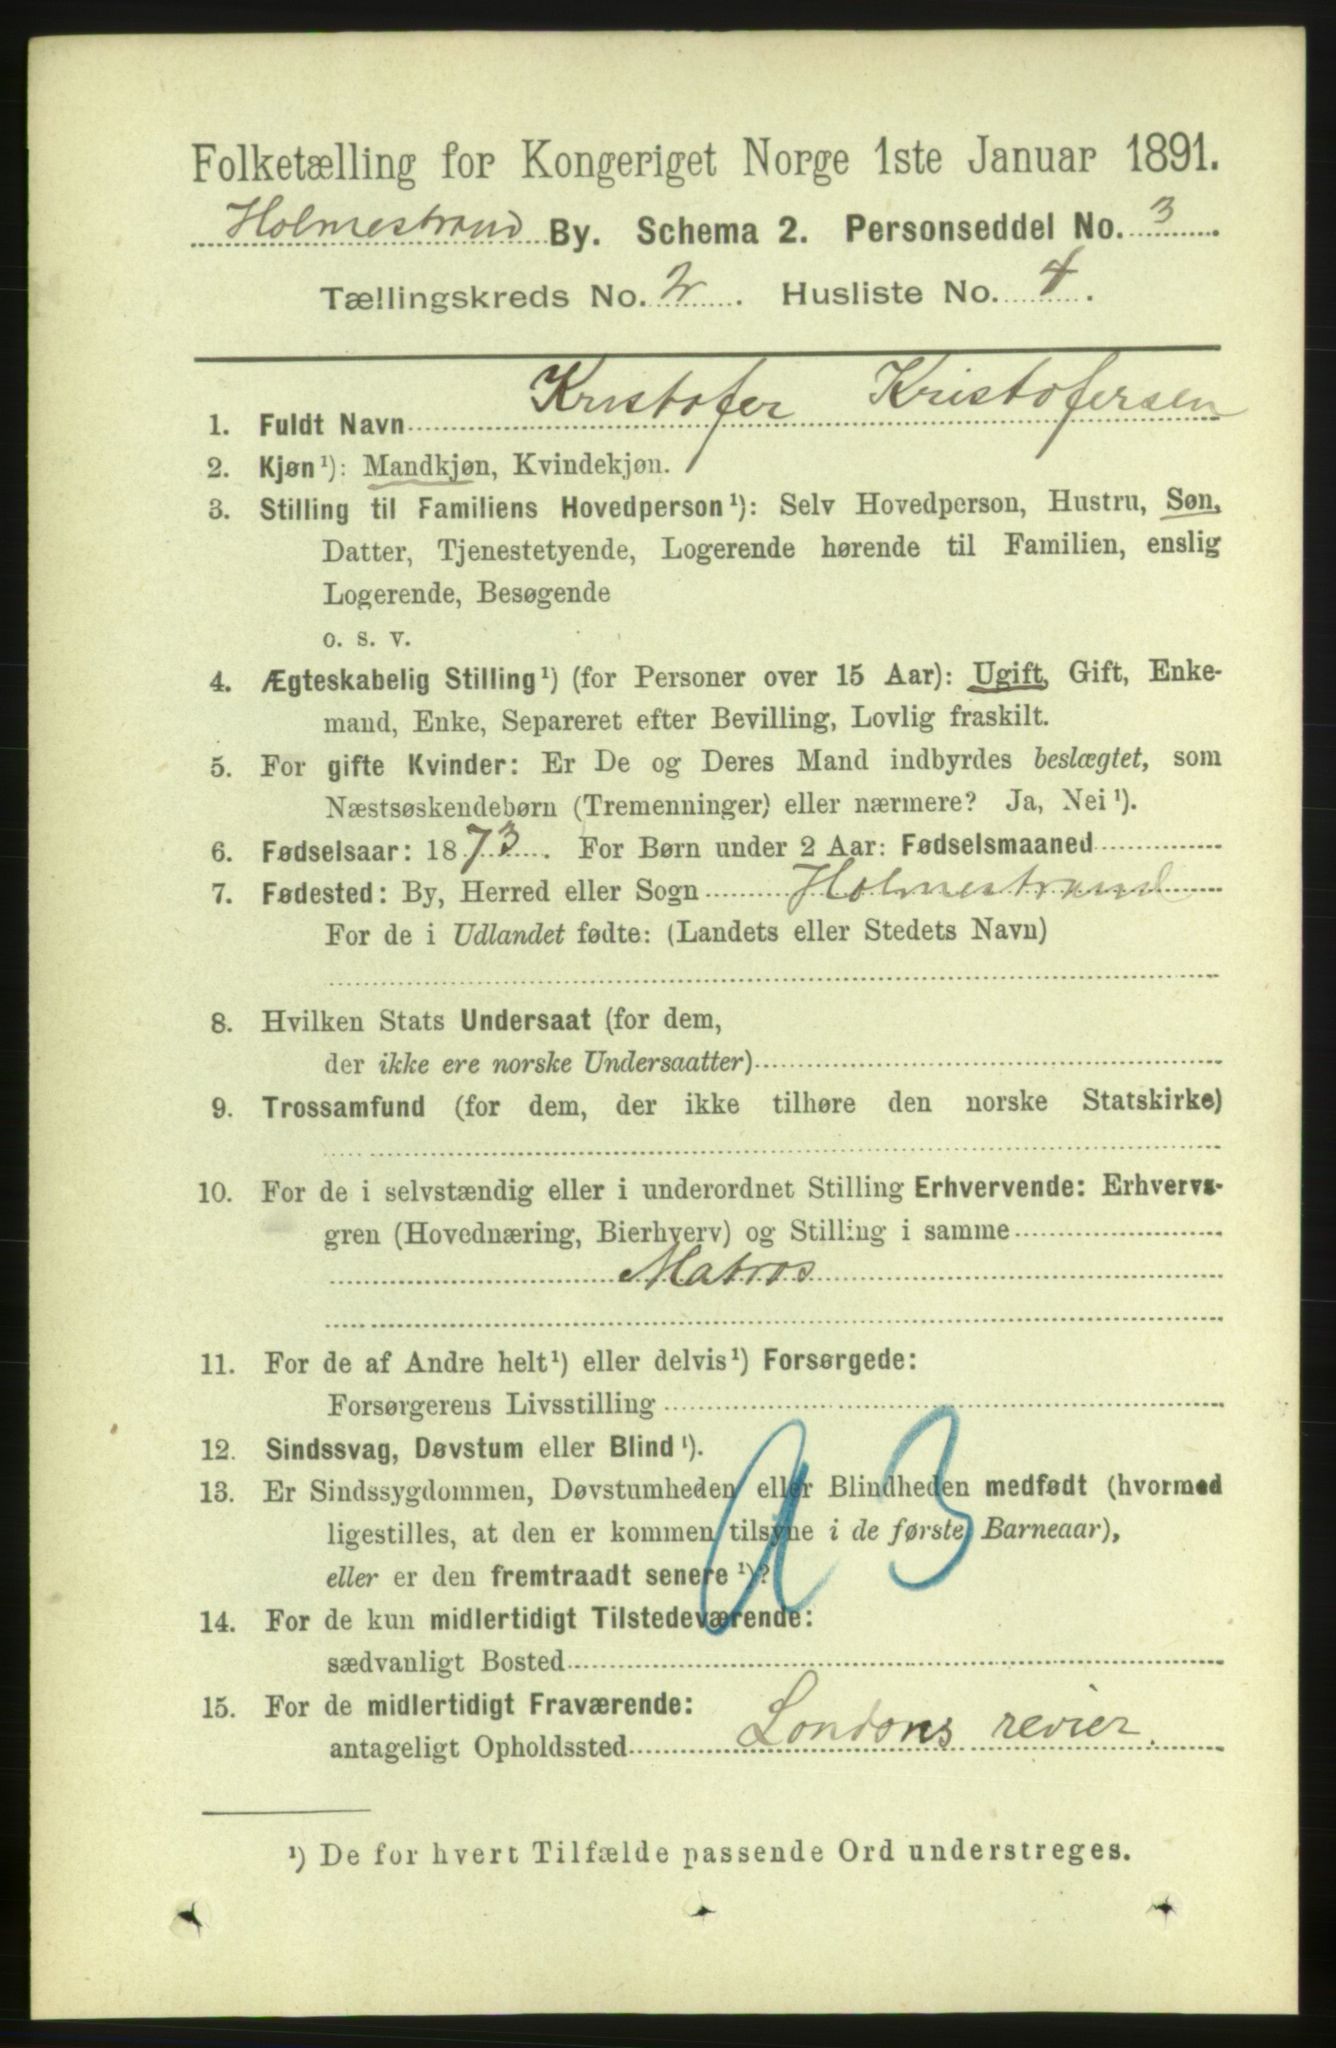 Folketælling for Kongeriget Norge 1ste Januar 1891.
Holmestrand By. Schema 2. Personseddel No. 3.
Tællingskreds No. 2. Husliste No. 4.
1. Fuldt Navn Kristofer Kristofersen
2. Kjøn¹): Mandkjøn, Kvindekjøn.
3. Stilling til Familiens Hovedperson¹): Selv Hovedperson, Hustru, Søn,
Datter, Tjenestetyende, Logerende hørende til Familien, enslig
Logerende, Besøgende
o. s. v.
4. Ægteskabelig Stilling¹) (for Personer over 15 Aar): Ugift, Gift, Enke-
mand, Enke, Separeret efter Bevilling, Lovlig fraskilt.
5. For gifte Kvinder: Er De og Deres Mand indbyrdes beslægtet, som
Næstsøskendebørn (Tremenninger) eller nærmere? Ja, Nei¹).
6. Fødselsaar: 1873. For Børn under 2 Aar: Fødselsmaaned
7. Fødested: By, Herred eller Sogn Holmestrand
For de i Udlandet fødte: (Landets eller Stedets Navn)
8. Hvilken Stats Undersaat (for dem,
der ikke ere norske Undersaatter)
9. Trossamfund (for dem, der ikke tilhøre den norske Statskirke)
10. For de i selvstændig eller i underordnet Stilling Erhvervende: Erhvervs-
gren (Hovednæring, Bierhverv) og Stilling i samme
Matros
11. For de af Andre helt¹) eller delvis¹) Forsørgede:
Forsørgerens Livsstilling
12. Sindssvag, Døvstum eller Blind¹).
13. Er Sindssygdommen, Døvstumheden eller Blindheden medfødt (hvormed
ligestilles, at den er kommen tilsyne i de første Barneaar),
eller er den fremtraadt senere¹)?
14. For de kun midlertidigt Tilstedeværende:
sædvanligt Bosted
15. For de midlertidigt Fraværende:
antageligt Opholdssted Londons revier.
¹) De for hvert Tilfælde passende Ord understreges.